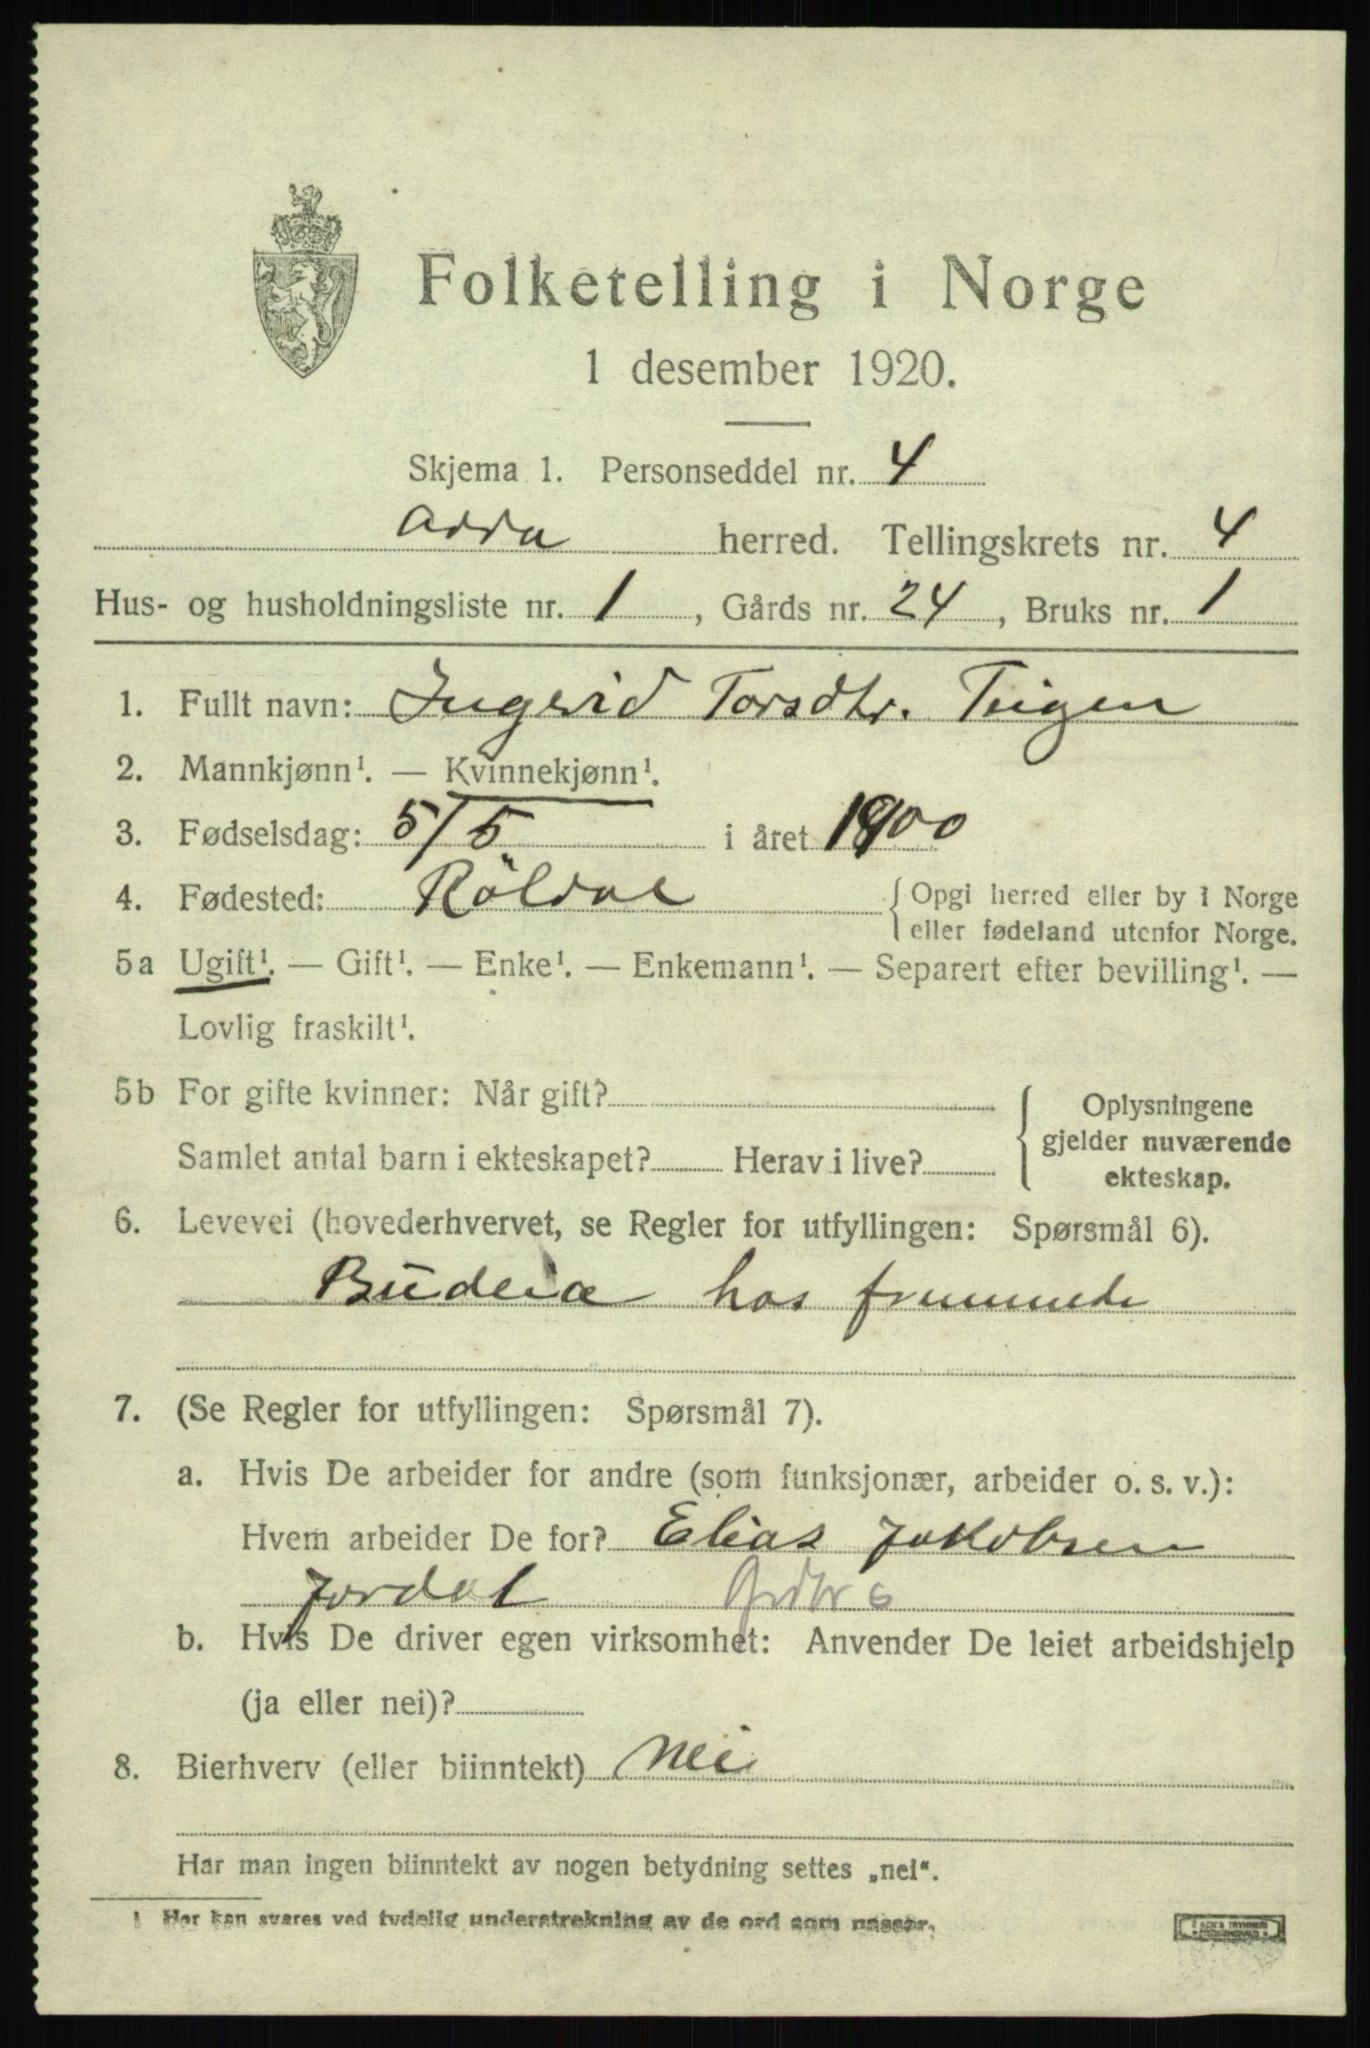 Folketelling i Norge
1 desember 1920.
Skjema 1. Personseddel nr. 4
Odda herred. Tellingskrets nr. 4
Hus- og husholdningsliste nr. 1, Gårds nr. 24, Bruks nr. 1
1. Fullt navn: Ingerid Torsdtr. Teigen
2. Mannkjønn¹. — Kvinnekjønn¹.
3. Fødselsdag: 5/5 i året 1900
4. Fødested: Röldal { Opgi herred eller by i Norge
eller fødeland utenfor Norge.
5a Ugift¹. — Gift¹. — Enke¹. — Enkemann¹. — Separert efter bevilling¹. —
Lovlig fraskilt¹.
5b For gifte kvinner: Når gift? { Oplysningene
gjelder nuværende
Samlet antal barn i ekteskapet? Herav i live?
ekteskap.
6. Levevei (hovederhvervet, se Regler for utfyllingen: Spørsmål 6).
Budeia hos fremmede
7. (Se Regler for utfyllingen: Spørsmål 7).
a. Hvis De arbeider for andre (som funksjonær, arbeider o. s. v.):
Hvem arbeider De for? Elias Jakobsen
Jordal Grdbr
b. Hvis De driver egen virksomhet: Anvender De leiet arbeidshjelp
(ja eller nei)?
8. Bierhverv (eller biinntekt) Nei
Har man ingen biinntekt av nogen betydning settes „nei“.
¹ Her kan svares ved tydelig understrekning av de ord som passer.